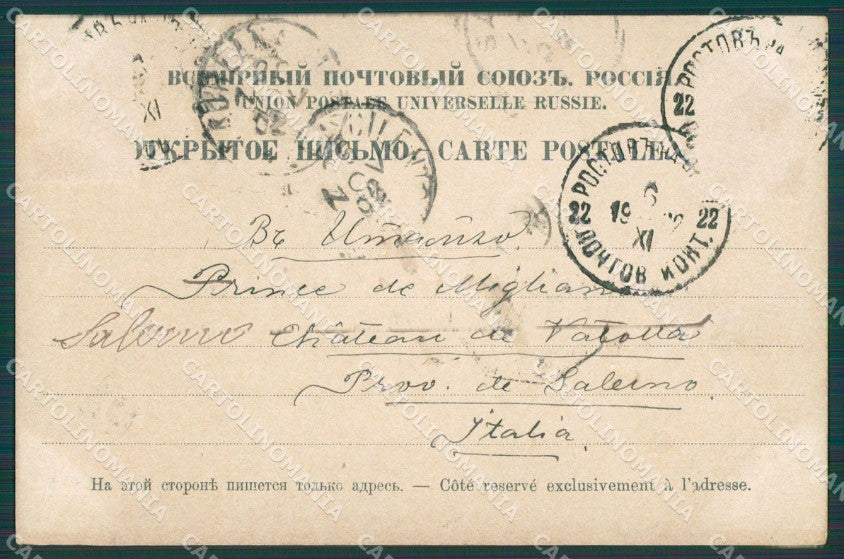 ВСЕМІРНЫЙ ПОЧТОВЫЙ СОЮЗЪ. РОССІЯ
UNION POSTALE UNIVERSELLE RUSSIE.
ОТКРЫТОЕ ПИСЬМО. CARTE POSTALE
РОСТОВЪ
22
РОСТОВЪ
22 19 22
XI
ПОЧТОВ КОНТ.
Въ Италію
Prince de Migliano
Salerno Château de Vatolla
Prov. de Salerno
Italia
На этой сторонѣ пишется только адресъ. — Côté reservé exclusivement à l'adresse.
CARTOLINOMANIA